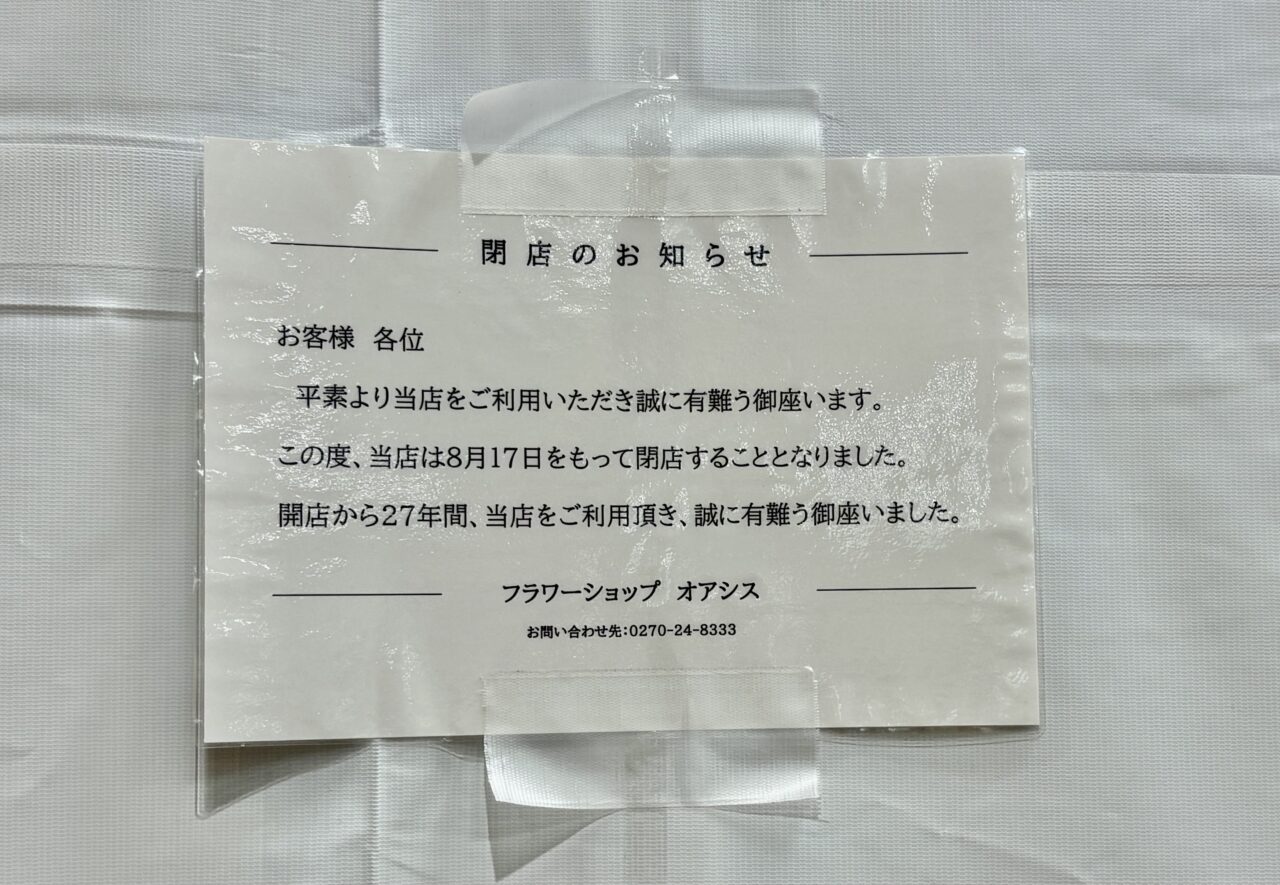 閉店のお知らせ
お客様 各位
平素より当店をご利用いただき誠に有難う御座います。
この度、当店は8月17日をもって閉店することとなりました。
開店から27年間、当店をご利用頂き、誠に有難う御座いました。
フラワーショップ オアシス
お問い合わせ先:0270-24-8333